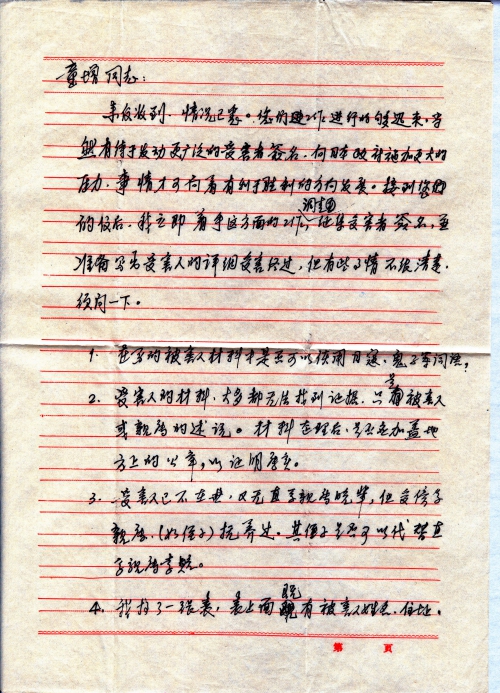 童增同志:
来信收到,情况已悉。您们进行的
然有待于发动更广泛的受害者签名,向日本政府施加更大的
压力,事情才可向着有利于胜利的方向发展。接到您们
调查
的信后,我立即着手这方面的工作,征集受害者签名,並
准备写出受害人的详细受害经过,但有些事情不很清楚,
须问一下。
1. 在写的被害人材料中是否可以使用日寇、鬼子等词语?
是
2. 受害人的材料,大多都无法找到证据,只有被害人
或亲属的述说。材料整理后,是否要加盖地
方上的公章,以证明属实。
3. 受害人已不在世,又无直系亲属晚辈,但受侄子
亲属,(如侄子)抚养过。其侄子是否可以代替直
系亲属索赔。
既
4. 我拟了一张表,表上面有被害人姓名、住址、
第 页